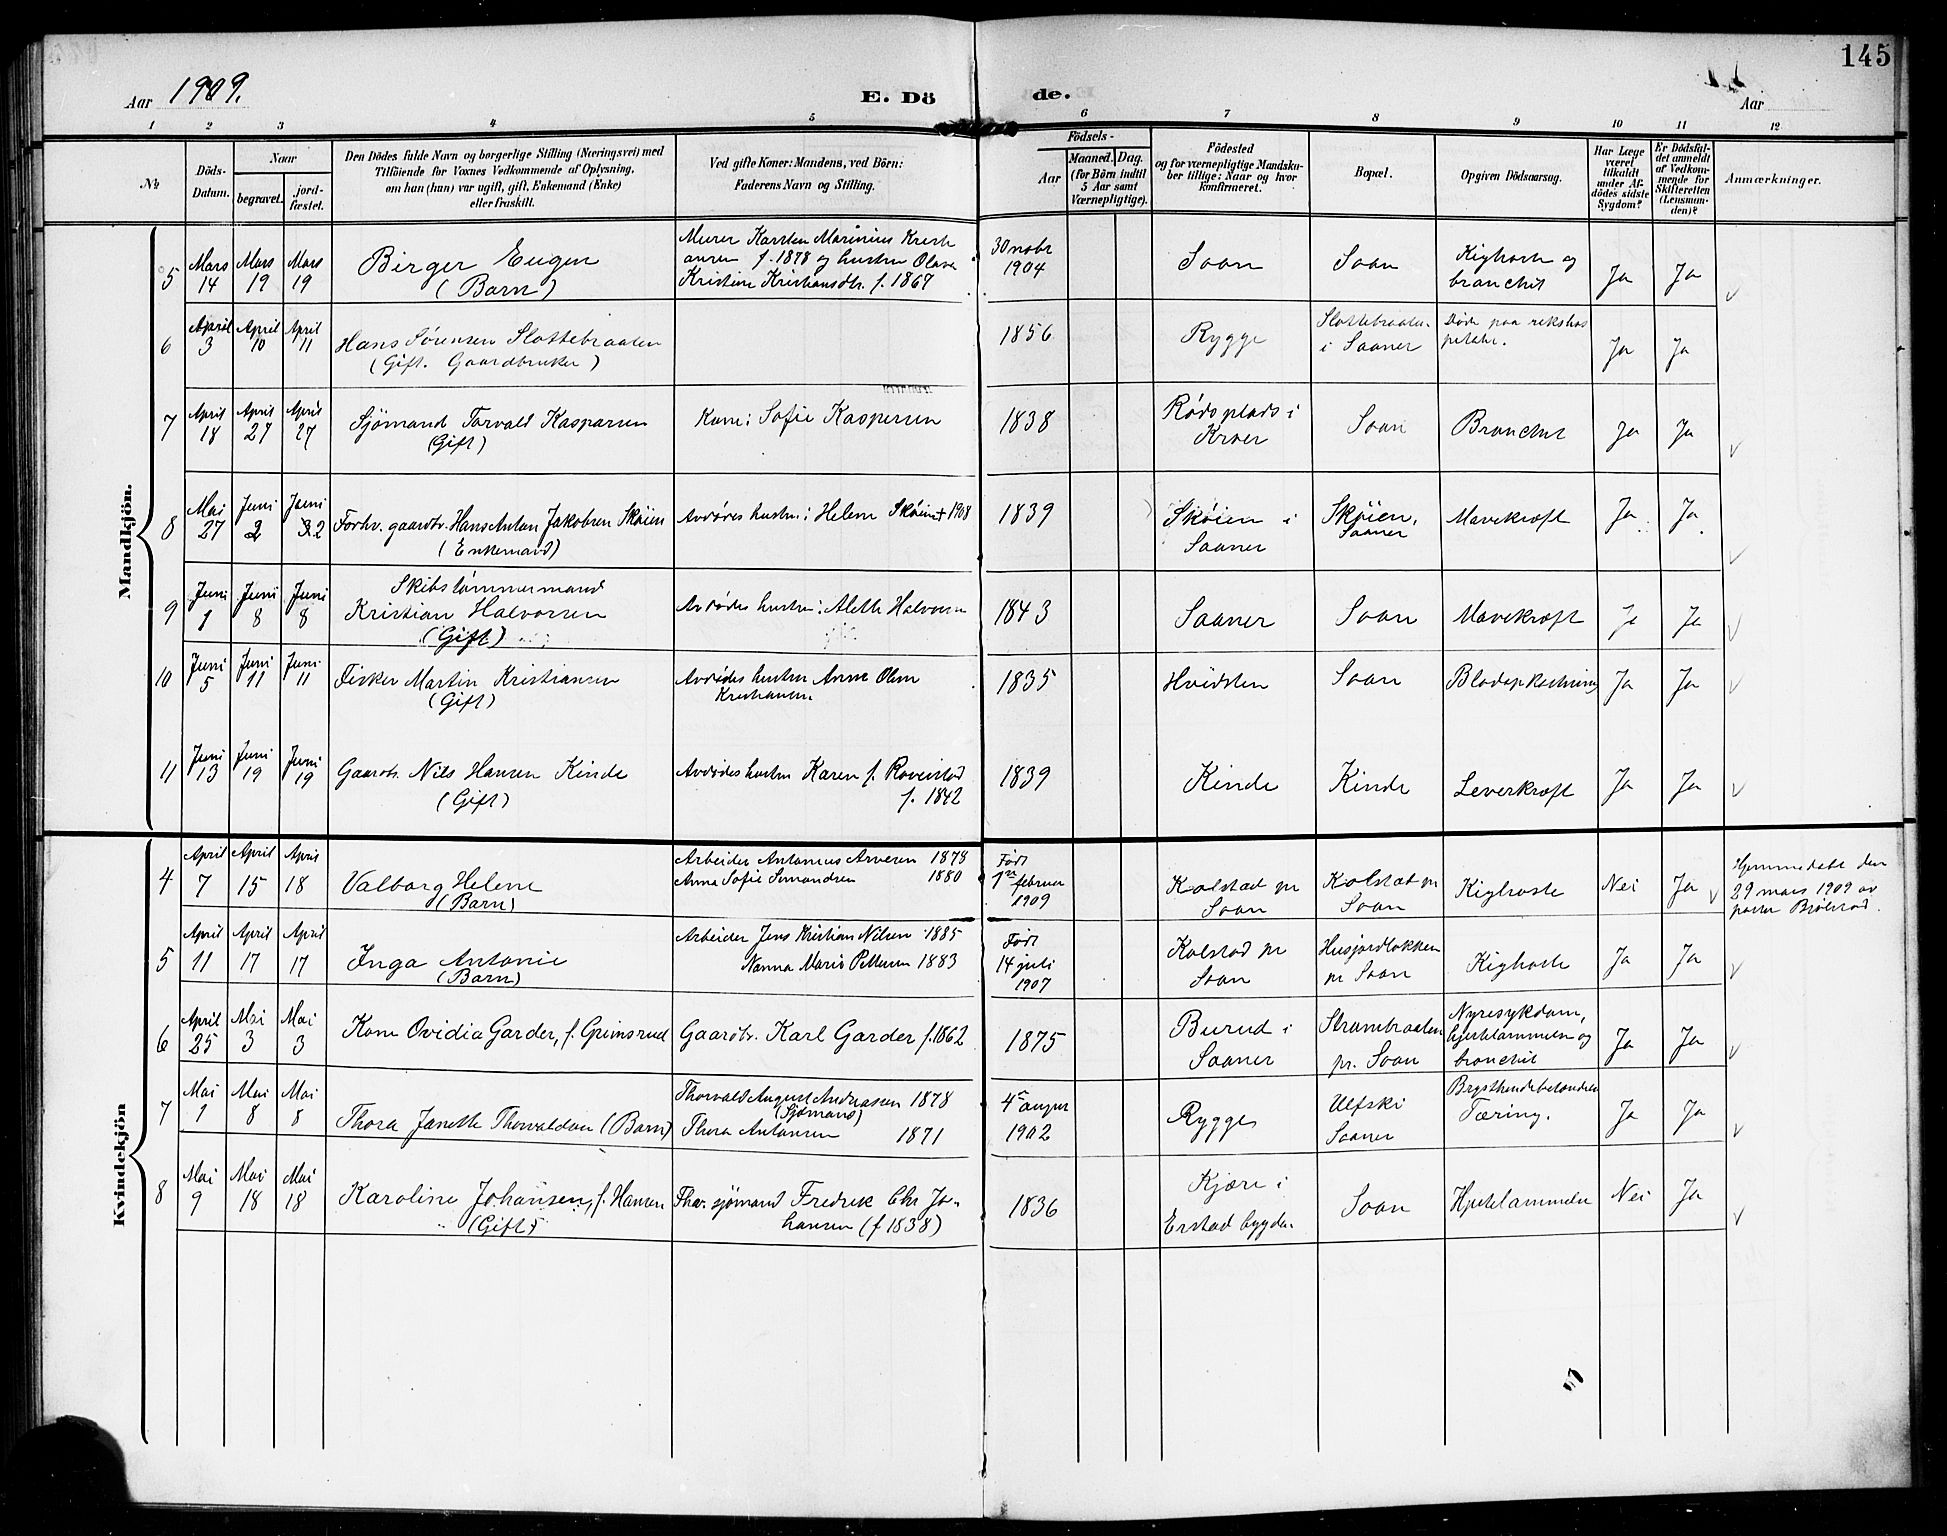 145
Aar 1909.
E. Dö de.
Aar
1 2 3 4 5 6 7 8 9 10 11 12
№
Döds-Datum.
Naar
begravet.
jord-fæstet.
Den Dödes fulde Navn og borgerlige Stilling (Næringsvei) med
Tilföiende for Voxnes Vedkommende af Oplysning,
om hun (han) var ugift, gift, Enkemand (Enke)
eller fraskilt.
Ved gifte Koner: Mandens, ved Börn:
Faderens Navn og Stilling.
Födsels-
Aar
Maaned. Dag.
(for Börn indtil
5 Aar samt
Værnepligtige).
Födested
og for værnepligtige Mandska-
ber tillige: Naar og hvor
konfirmeret.
Bopæl.
Opgiven Dödsaarsag.
Har Læge
været
tilkaldt
under Af-
dödes sidste
Sygdom?
Er Dödsfal-
det anmeldt
af Vedkom-
mende for
Skifteretten
(Lensman-
den)?
Anmærkninger.
Mandkjön.
5 Mars 14 Mars 19 Mars 19 Birger Eugen
(Barn)
Murer Karsten Marinius Kristi
ansen f. 1878 og hustru Olava
Kristine Kristiansdtr. f. 1867
30 novbr 1904 Soon Soon Kighoste og
bronchit Ja Ja
6 April 3 April 10 April 11 Hans Sörensen Slottebraaten
(Gift. Gaardbruker)
1856 Rygge Slottebraaten
i Saaner Döde paa rikshos
pitalet. Ja Ja
7 April 18 April 27 April 27 Sjömand Torvald Kaspersen
(Gift)
Kone: Sofie Kaspersen
1838 Rödsplads i
Kroer Soon Bronchit Ja Ja
8 Mai 27 Juni 2 Juni 2 Forhv. gaardbr. Hans Anton Jakobsen Sköien
(Enkemand)
Avdödes hustru: Helene Sköien + 1908
1839 Sköien i
Saaner Sköien,
Saaner Mavekræft Ja Ja
9 Juni 1 Juni 8 Juni 8 Skibstömmermand
Kristian Halvorsen
(Gift)
Avdödes hustru: Alethe Halvorsen
1843 Saaner Soon Mavekræft Ja Ja
10 Juni 5 Juni 11 Juni 11 Fisker Martin Kristiansen
(Gift)
Avdödes hustru Anne Oline
Kristiansen
1835 Hvidsten Soon Blodopkastning Ja Ja
11 Juni 13 Juni 19 Juni 19 Gaardbr. Nils Hansen Kinde
(Gift)
Avdödes hustru Karen f. Raveistad
f. 1842
1839 Kinde Kinde Leverkræft Ja Ja
Kvindekjön
4 April 7 April 15 April 18 Valborg Helene
(Barn)
Arbeider Antonius Arnesen 1878
Anna Sofie Simonsen 1880
Födt
1ste februar
1909
Kolstad pr
Soon Kolstad pr
Soon Kighoste Nei Ja
Hjemmedöbt den
29 mars 1909 av
pastor Bjölstad.
5 April 11 April 17 April 17 Inga Antonie
(Barn)
Arbeider Jens Kristian Nilsen 1885
Nanna Marie Pettersen 1883
Födt
14 juli
1907
Kolstad pr
Soon Husjordlökken
pr Soon Kighoste Ja Ja
6 April 25 Mai 3 Mai 3 Kone Ovidia Garder, f. Grimsrud
Gaardbr. Karl Garder f. 1862
1875 Burud i
Saaner Strömbraaten
pr. Soon Nyresykdom,
hjertelammelse og
bronchit Ja Ja
7 Mai 1 Mai 8 Mai 8 Thora Janette Thorvaldsen (Barn)
Thorvald August Andreasen 1878
(Sjömand)
Thora Antonsen 1871
4de august
1902 Rygge Ulfski
Saaner Brysthindebetændelse
Tæring. Ja Ja
8 Mai 9 Mai 18 Mai 18 Karoline Johansen, f. Hansen
(Gift)
Fhv. sjömand Fredrik Chr. Jo-
hansen (f 1838)
1836 Kjære i
Erstad bygden Soon Hjertelammelse Nei Ja